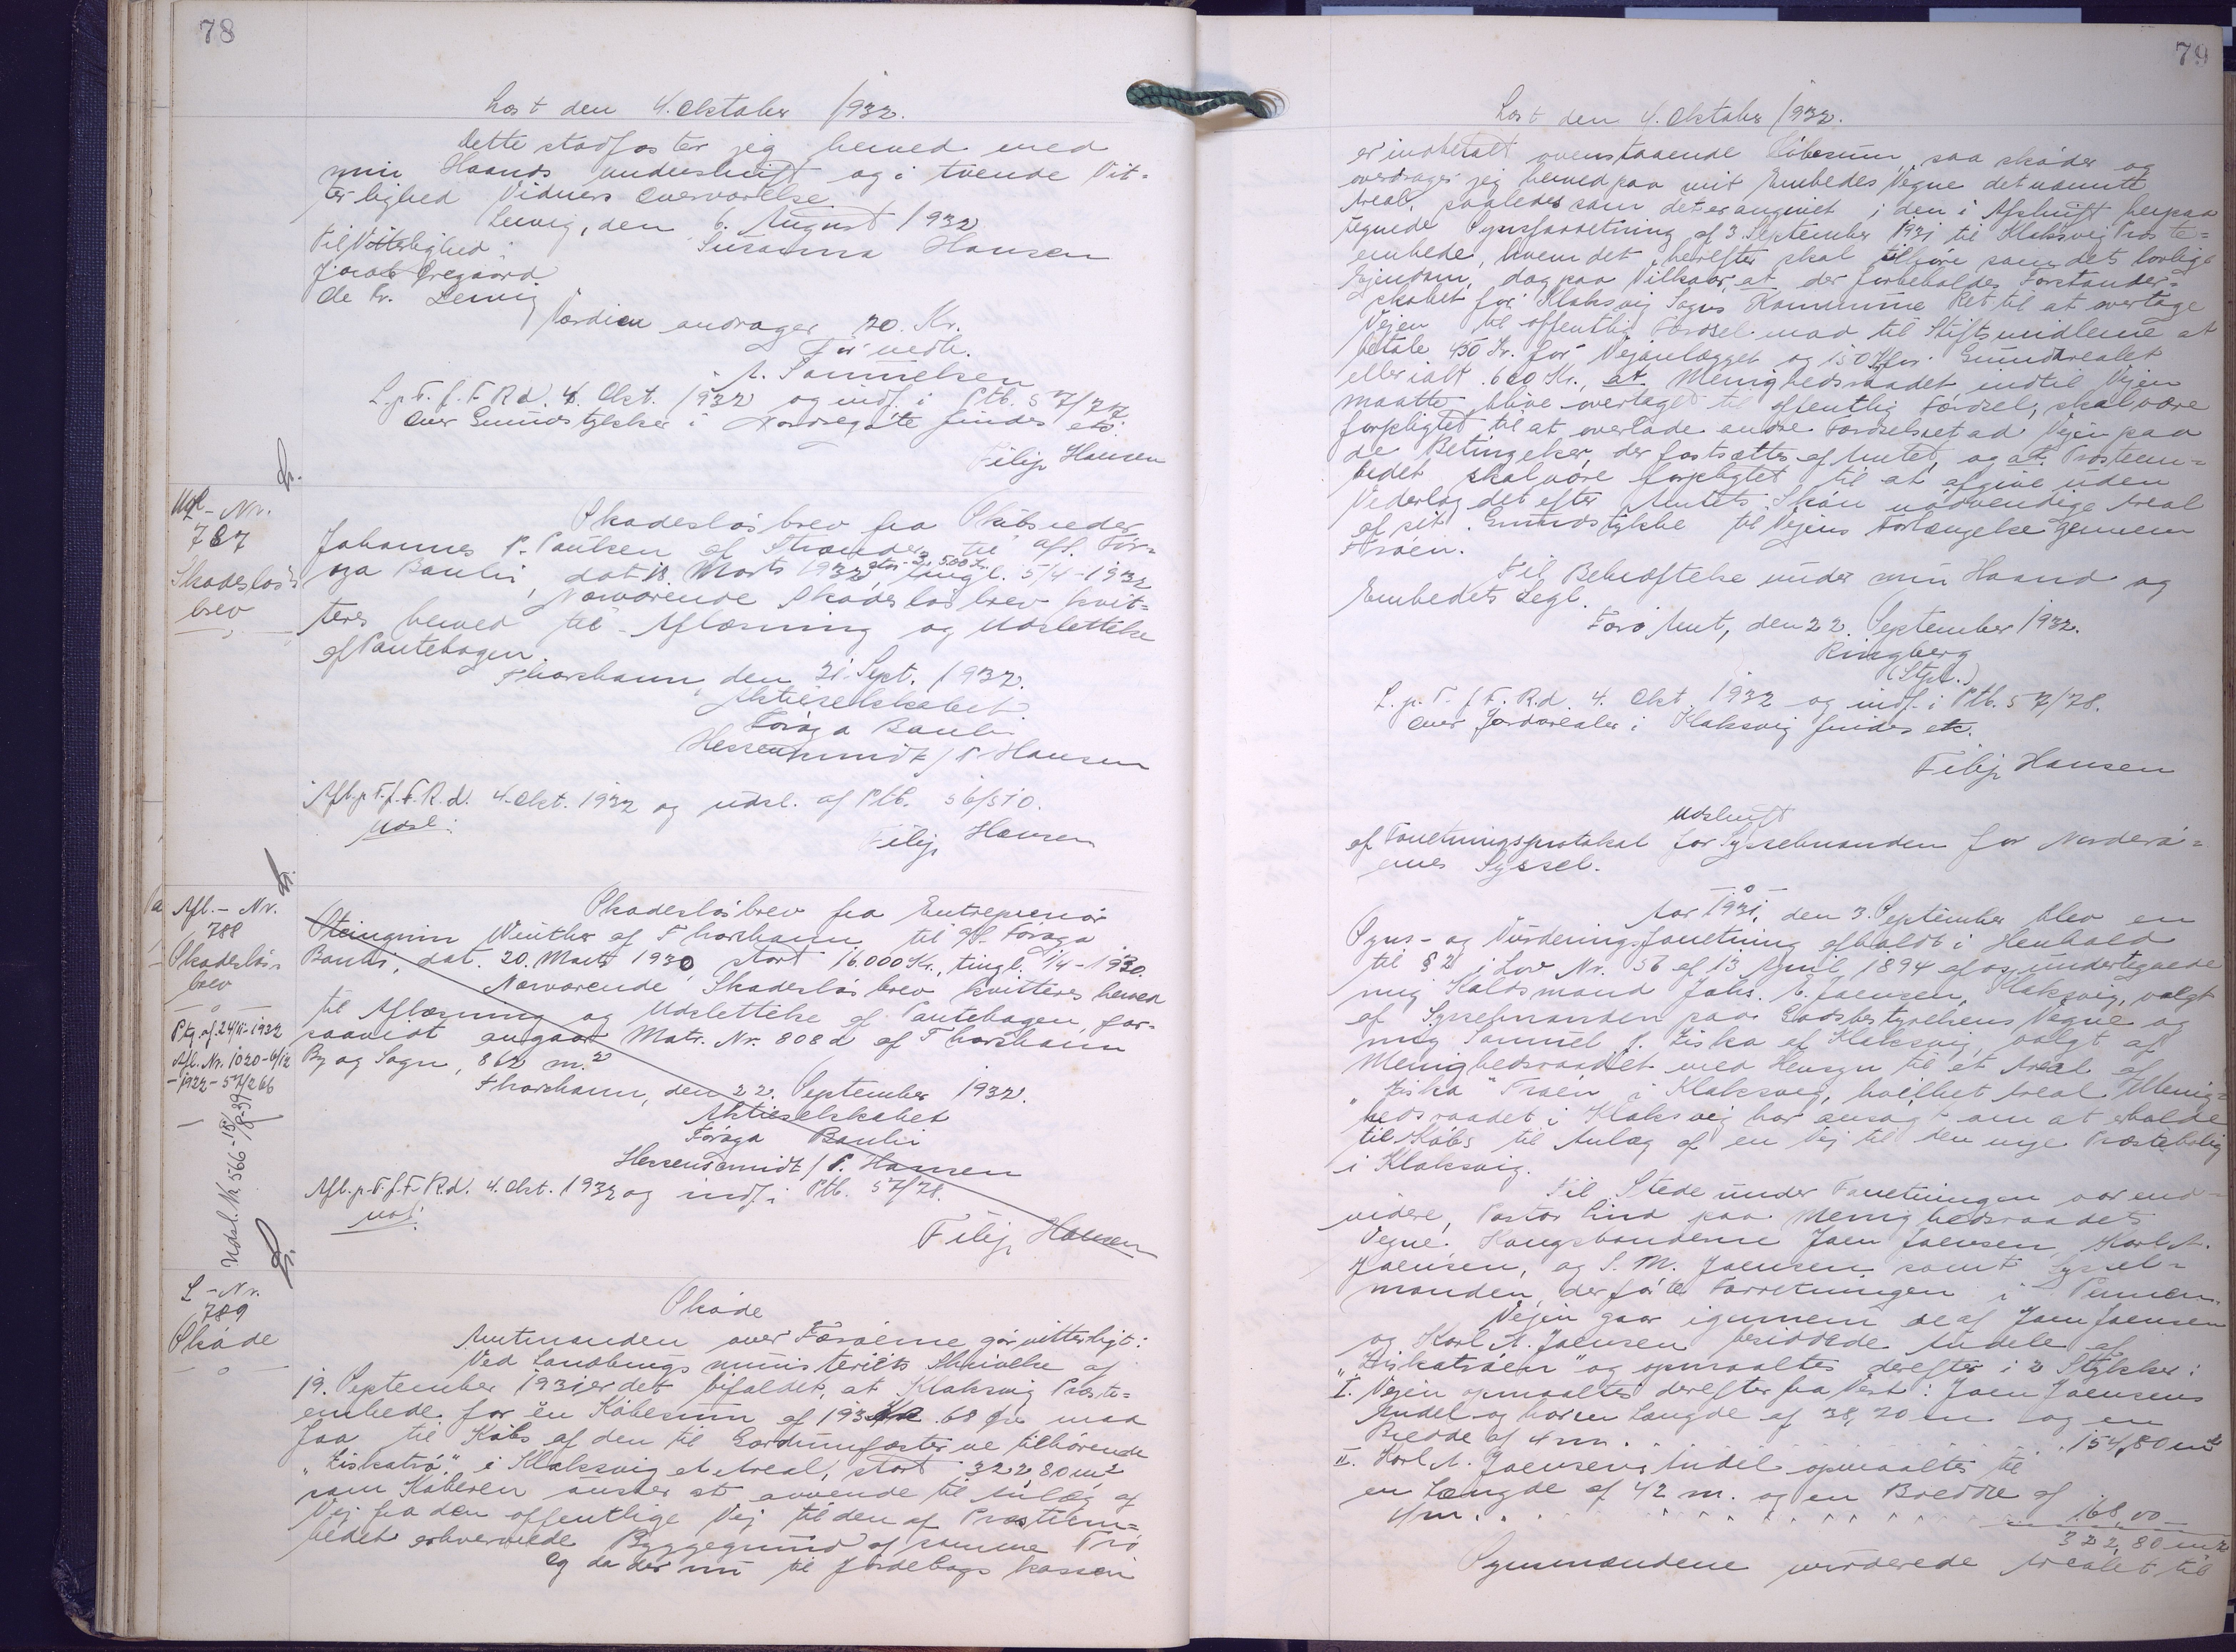 78
Læst den 4. Oktober 1932.
Dette stadfæster jeg herved med
min Haands underskrift og i tvende Vit-
terlighed Vidners Overværelse.
Lervig, den 6. August 1932
Til Vitterlighed: Susanna Hansen
Jacob Öregaard
Ole Kr. Lervig
Værdien andrager 20. Kr.
För nedh.
A. Samuelsen
L.p.T.f.F.R.d. 4. Okt. 1932 og indf. i Ptb. 57/77
Over Grundstykker i Nordregöte findes etc.
Filip Hansen
Afl.- Nr.
787
Skadeslös
brev
Skadeslösbrev fra Skibsreder
Johannes P. Poulsen af Strænder til A/S. För-
oya Banki, dat. 18. Marts 1932, stor 3,500 Kr. tingl. 5/4-1932
Nærværende Skadeslösbrev kvit-
teres herved til Aflæsning og Udslettelse
af Pantebogen.
Thorshavn, den 21. Sept. 1932.
Aktieselskabet
Föroya Banki
Heesenschmidt / P. Hansen
Afl.p.T.f.F.R.d. 4. Okt. 1932 og udsl. af Ptb. 56/510.
Udsl:
Filip Hansen
Afl.- Nr.
788
Skadeslös-
brev
Ptg. af 24/11-1932
Afl. Nr. 1020-6/12
-1932-57/266
Udsl. Nr. 566-15/8-39
Skadeslösbrev fra Entreprenör
Steingrim Winther af Thorshavn til A/S. Föroya
Banki, dat. 20. Marts 1930 stort 16.000 Kr., tingl. 1/4-1930.
Nærværende Skadeslösbrev kvitteres herved
til Aflæsning og Udslettelse af Pantebogen, for-
saavidt angaar Matr. Nr. 808d af Thorshavn
By og Sogn, 862 m.2
Thorshavn, den 22. September 1932.
Aktieselskabet
Föroya Banki
Heesenschmidt / P. Hansen
Afl.p.T.f.F.R.d. 4. Okt. 1932 og indf. i Ptb. 57/78.
Filip Hansen
L-Nr.
789
Sköde
Sköde
Amtmanden over Færöerne gör vitterligt:
Ved Landbrugsministeriets Skrivelse af
19. September 1931 er det bifaldet, at Klaksvig Præste-
embede for en Köbesum af 193 Kr. 68 Öre maa
faa til Köbs af den til Gaardumfæsterne tilhörende
"Ziskatrö" i Klaksvig et Areal, stort 322,80 m2
som Köberen önsker at anvende til Anlæg af
Vej fra den offentlige Vej til den af Præsteem-
bedet erhvervede Byggegrund af samme Trö
Og da der nu til Jordebogskassen
79
Læst den 4. Oktober 1932.
er indbetalt ovenstaaende Köbesum, saa sköder og
overdrager jeg herved paa mit Embedes Vegne det nævnte
Areal, saaledes som det er angivet i den i Afskrift herpaa
tegnede Synsforretning af 3. September 1931 til Klaksvig Præste-
embede, hvem det herefter skal tilhöre som dets lovlige
Ejendom, dog paa Vilkaar, at der forbeholdes Forstander-
skabet for Klaksvig Sogns Kommune Ret til at overtage
Vejen til offentlig Færdsel mod til Stiftsmidlerne at
betale 450 Kr. for Vejanlægget og 150 Kr for Grundarealet
eller ialt 600 Kr., at Menighedsraadet indtil Vejen
maatte blive overtaget til offentlig Færdsel, skal være
forpligtet til at overlade andre Færdselsret ad Vejen paa
de Betingelser, der fastsættes af Amtet, og at Præsteem-
bedet skal være forpligtet til at afgive uden
Vederlag det efter Amtets Skön nödvendige Areal
af sit Grundstykke til Vejens Forlængelse gennem
Tröen.
Til Bekræftelse under min Haand og
Embedets Segl.
Færö Amt, den 22. September 1932.
Ringberg
(Stpl.)
L.p.T.f.F.R.d. 4. Okt. 1932 og indf. i Ptb. 57/78.
Over Jordarealer i Klaksvig findes etc.
Filip Hansen
Udskrift
af Forretningsprotokol for Sysselmanden for Norderö-
ernes Syssel.
Aar 1931, den 3. September blev en
Syns- og Vurderingsforretning afholdt i Henhold
til § 2 i Lov Nr. 56 af 13 April 1894 af os undertegnede
mig Kaldsmand Johs. E. Joensen, Klaksvig, valgt
af Sysselmanden paa Godsbestyrelsens Vegne og
mig Samuel J. Ziska af Klaksvig, valgt af
Menighedsraadet med Hensyn til et Areal af
"Ziska" Tröen i Klaksvig, hvilket Areal Menig-
hedsraadet i Klaksvig har ansögt om at erholde
til Köbs til Anlæg af en Vej til den nye Præstebolig
i Klaksvig.
Til Stede under Forretningen var end-
videre, Pastor Lind paa Menighedsraadets
Vegne. Kongsbönderne Joen Joensen, Karl A.
Joensen, og S. M. Joensen samt Syssel-
manden, der förte Forretningen i Pennen.
Vejen gaar igennem de af Joen Joensen
og Karl A. Joensen besiddede Andele af
"Ziskatröen" og opmaaltes derefter i 2 Stykker:
I. Vejen opmaaltes derefter fra Vest: Joen Joensens
Andel og har en Længde af 38,70 m og en
Bredde af 4 m. . . . 154,80 m2
II. Karl A. Joensens Andel opmaaltes til
en Længde af 42 m. og en Bredde af
4 m. . . . . . . . . . . . 168,00 -
322,80 m2
Synsmændene vurderede Arealet til